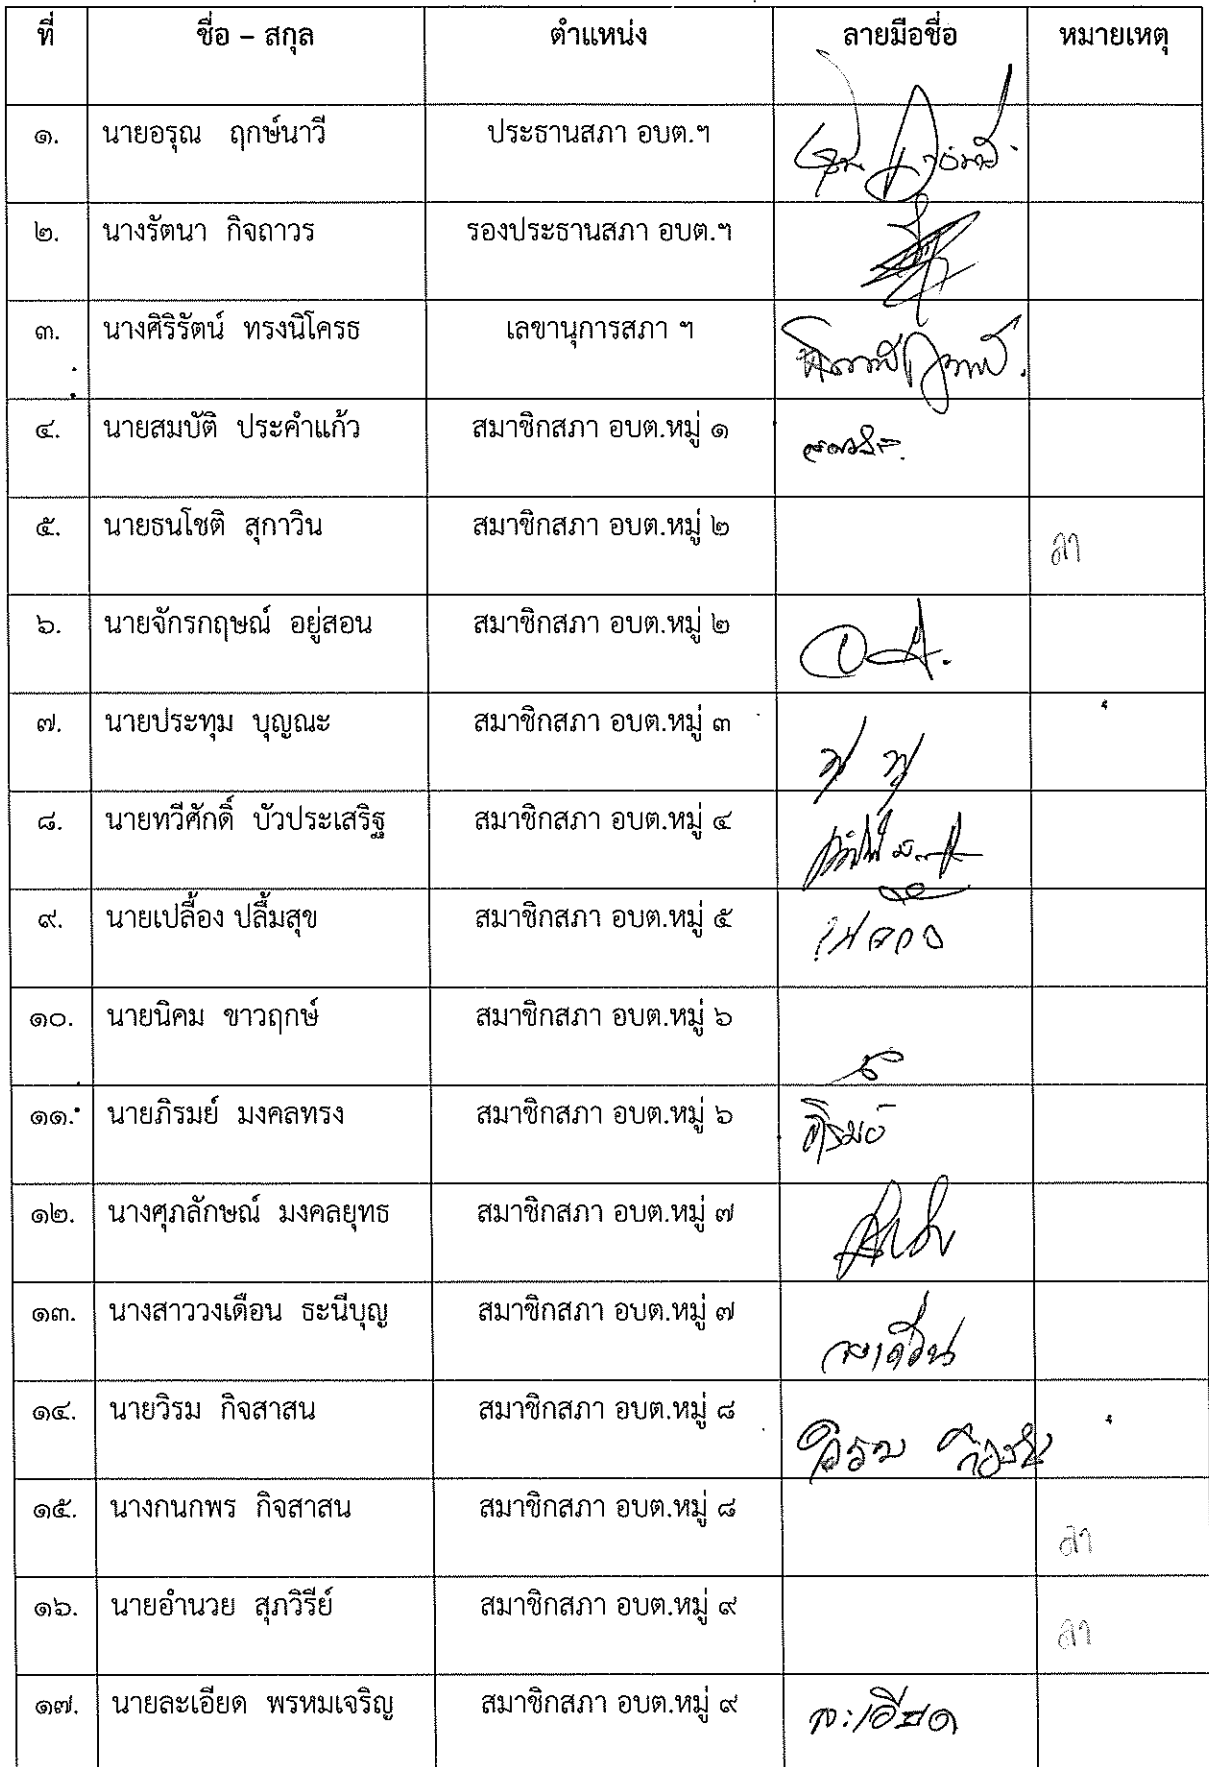 ที่ ชื่อ – สกุล ตำแหน่ง ลายมือชื่อ หมายเหตุ
๑. นายอรุณ ฤกษ์นาวี ประธานสภา อบต.ฯ
๒. นางรัตนา กิจถาวร รองประธานสภา อบต.ฯ
๓. นางศิริรัตน์ ทรงนิโครธ เลขานุการสภา ฯ
๔. นายสมบัติ ประคำแก้ว สมาชิกสภา อบต.หมู่ ๑
๕. นายธนโชติ สุกาวิน สมาชิกสภา อบต.หมู่ ๒ ลา
๖. นายจักรกฤษณ์ อยู่สอน สมาชิกสภา อบต.หมู่ ๒
๗. นายประทุม บุญณะ สมาชิกสภา อบต.หมู่ ๓
๘. นายทวีศักดิ์ บัวประเสริฐ สมาชิกสภา อบต.หมู่ ๔
๙. นายเปลื้อง ปลื้มสุข สมาชิกสภา อบต.หมู่ ๕
๑๐. นายนิคม ขาวฤกษ์ สมาชิกสภา อบต.หมู่ ๖
๑๑. นายภิรมย์ มงคลทรง สมาชิกสภา อบต.หมู่ ๖ ภิรมย์
๑๒. นางศุภลักษณ์ มงคลยุทธ สมาชิกสภา อบต.หมู่ ๗
๑๓. นางสาววงเดือน ธะนีบุญ สมาชิกสภา อบต.หมู่ ๗ วงเดือน
๑๔. นายวิรม กิจสาสน สมาชิกสภา อบต.หมู่ ๘
๑๕. นางกนกพร กิจสาสน สมาชิกสภา อบต.หมู่ ๘ ลา
๑๖. นายอำนวย สุภวิรีย์ สมาชิกสภา อบต.หมู่ ๙ ลา
๑๗. นายละเอียด พรหมเจริญ สมาชิกสภา อบต.หมู่ ๙ ละเอียด